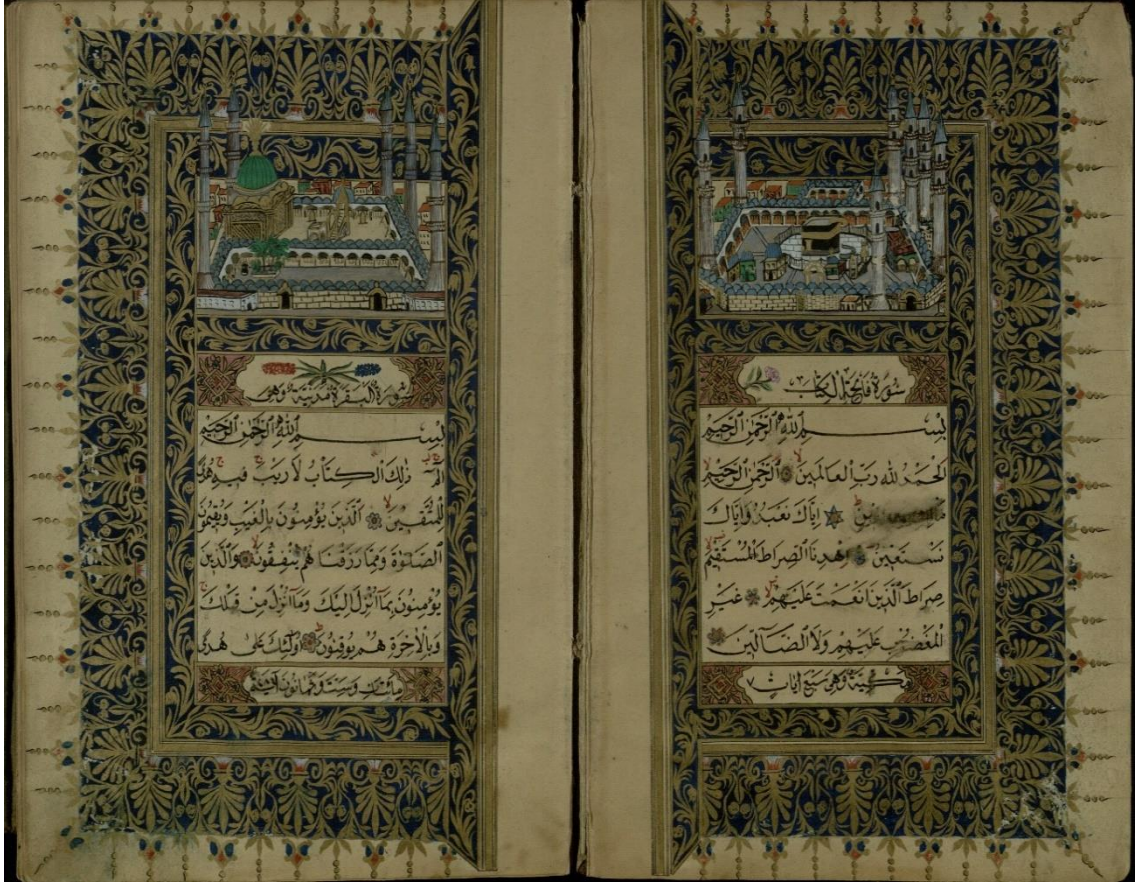 سورة فاتحة الكتاب
بسم الله الرحمن الرحيم
الحمد لله رب العالمين الرحمن الرحيم
الدين اياك نعبد واياك
نستعين اهدنا الصراط المستقيم
صراط الذين انعمت عليهم غير
المغضوب عليهم ولا الضالين
مكية وهي سبع ايات ٧
سورة البقرة مدنية وهي
بسم الله الرحمن الرحيم
الم ذلك الكتاب لا ريب فيه هدى
للمتقين الذين يؤمنون بالغيب ويقيمون
الصلوة ومما رزقناهم ينفقون والذين
يؤمنون بما انزل اليك وما انزل من قبلك
وبالاخرة هم يوقنون اولئك على هدى
وست وثمانون آية